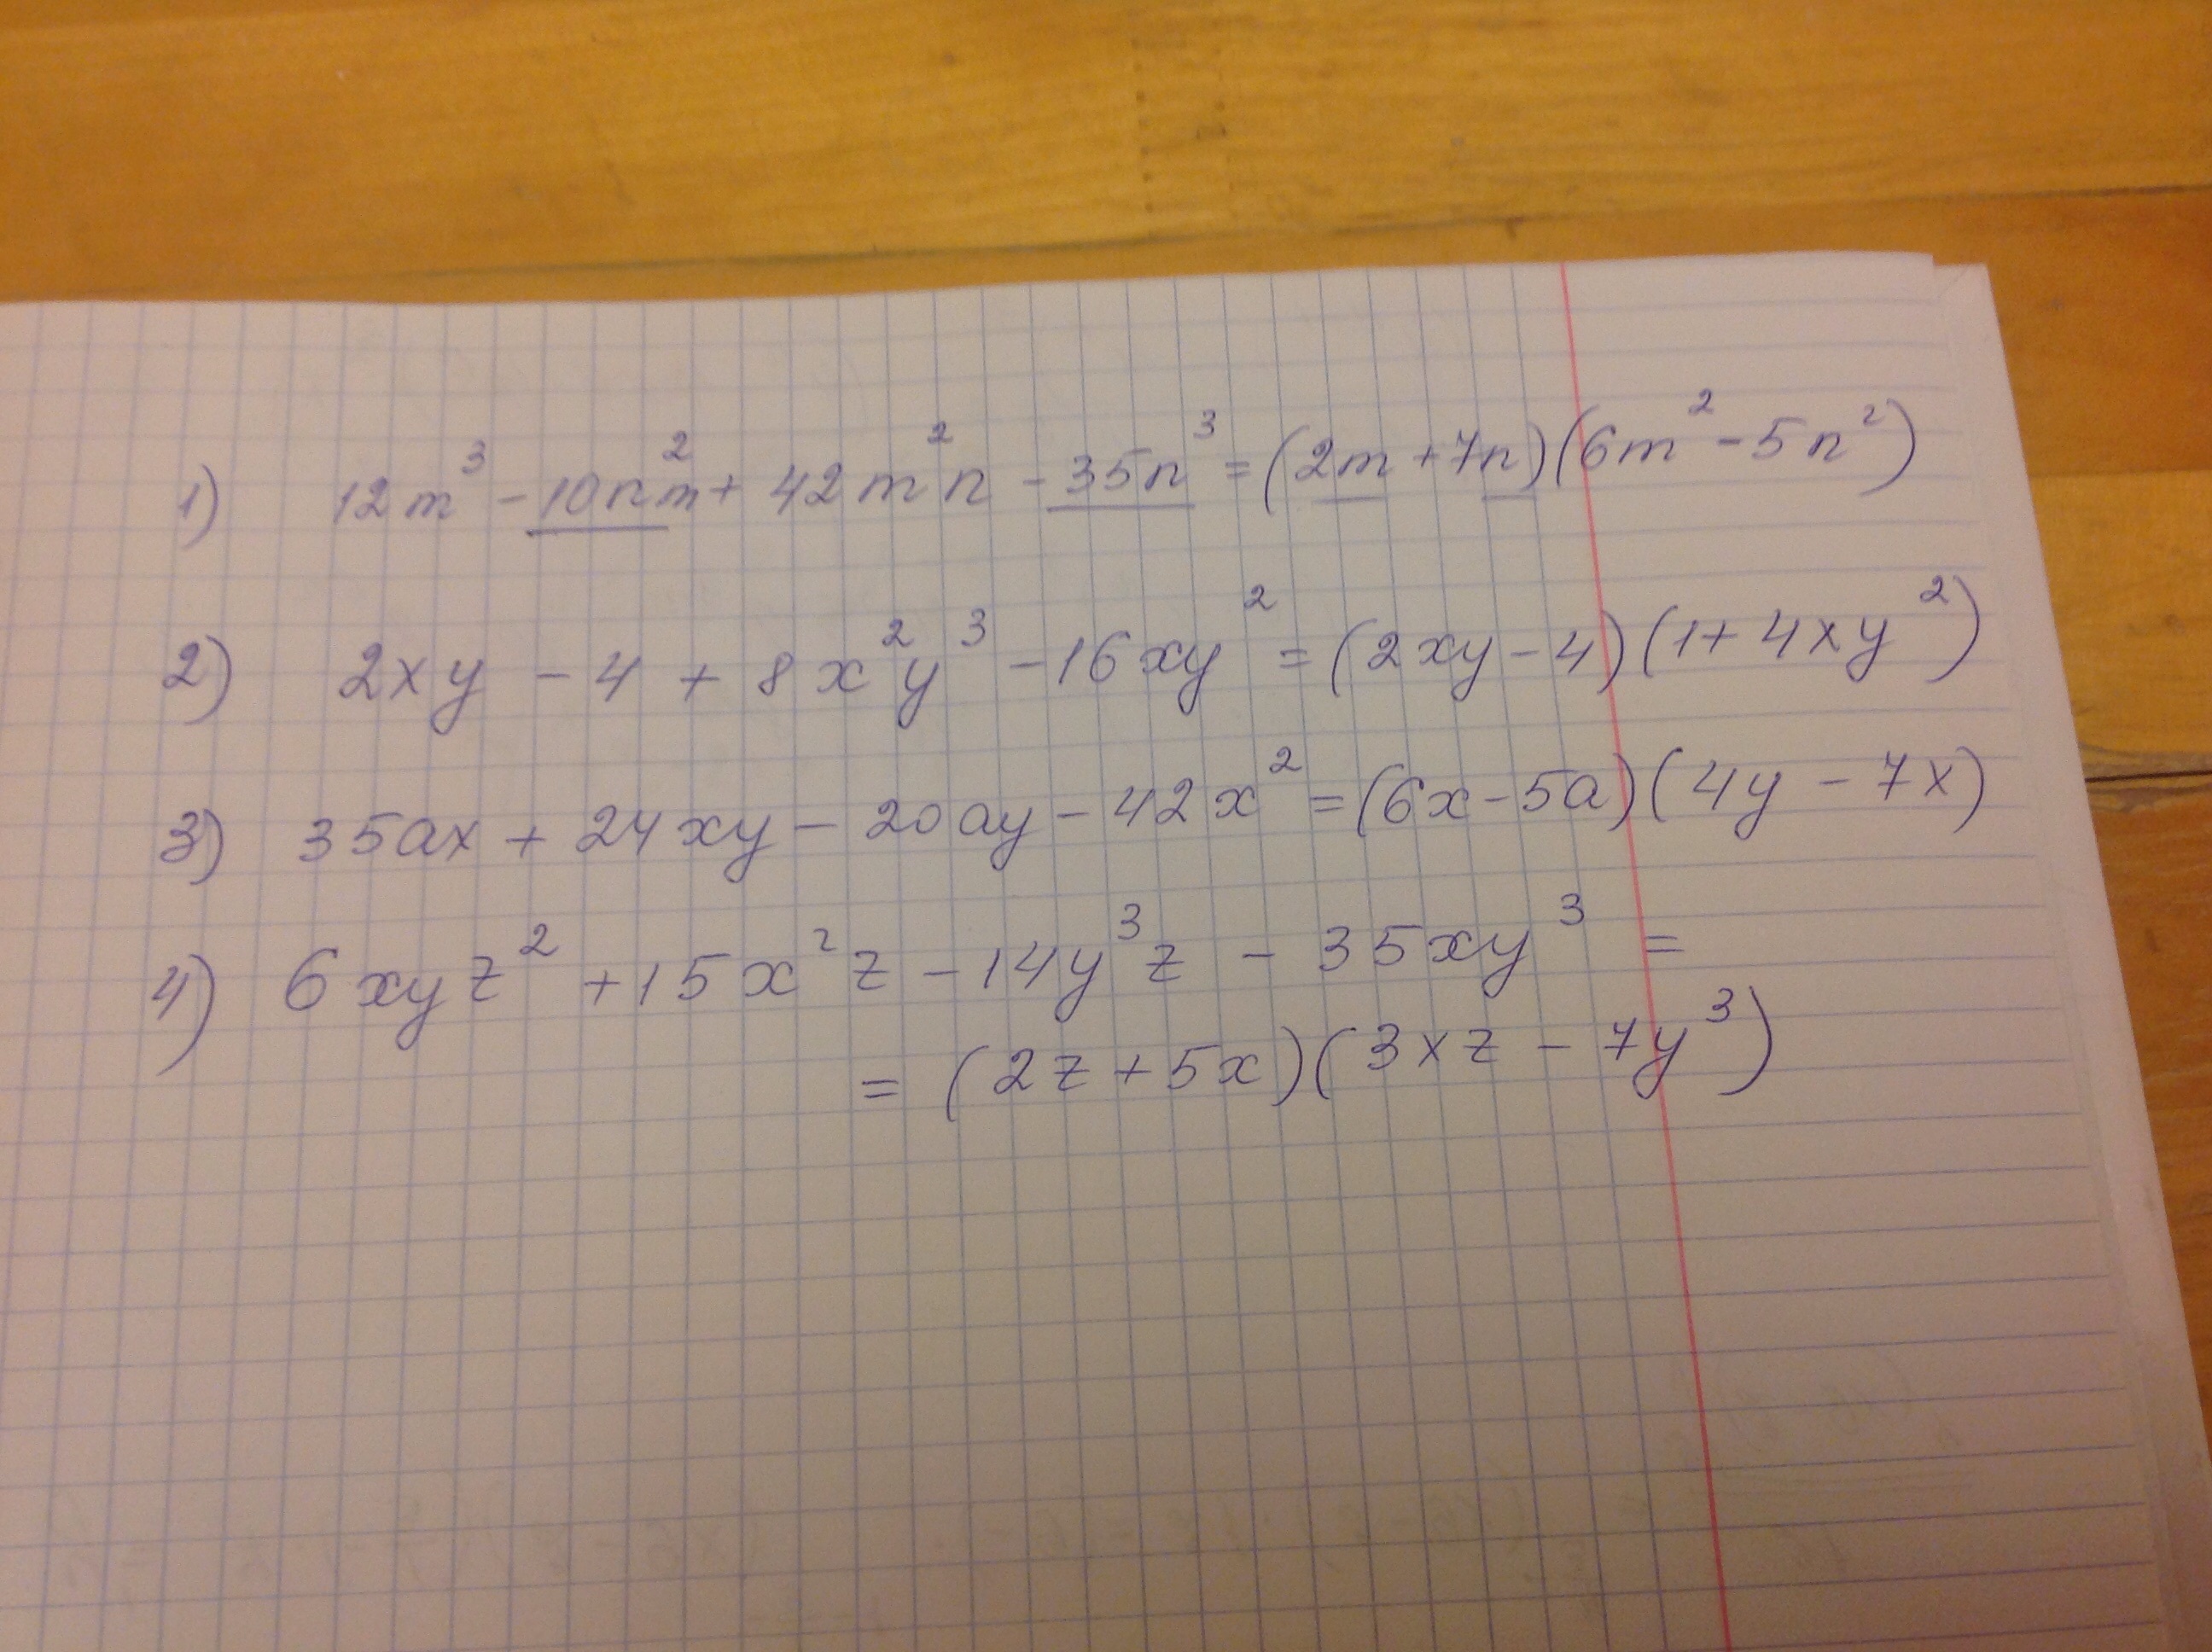 1) 12m³ - 10n²m + 42m²n - 35n³ = (2m + 7n)(6m² - 5n²)
2) 2xy - 4 + 8x²y³ - 16xy² = (2xy - 4)(1 + 4xy²)
3) 35ax + 24xy - 20ay - 42x² = (6x - 5a)(4y - 7x)
4) 6xyz² + 15x²z - 14y³z - 35xy³ =
= (2z + 5x)(3xz - 7y³)